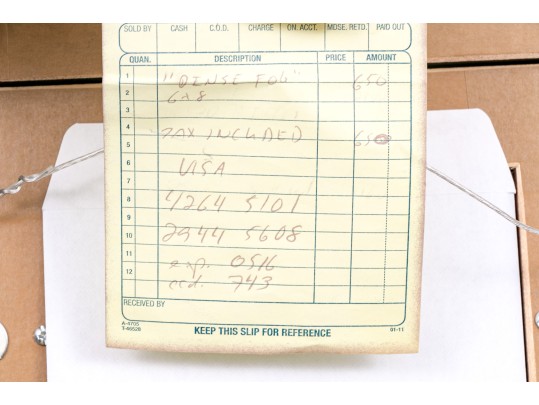 SOLD BY CASH C.O.D. CHARGE ON ACCT. MDSE. RETD. PAID OUT
QUAN. DESCRIPTION PRICE AMOUNT
1 "DENSE FOG" 650
2 6x8
3
4 TAX INCLUDED 650
5
6 VISA
7
8 4264 5101
9
10 2944 5608
11 exp. 0516
12 ccd. 743
RECEIVED BY
A-4705
T-46528
KEEP THIS SLIP FOR REFERENCE
01-11